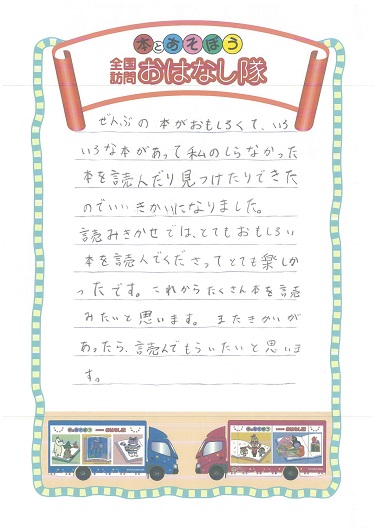 本とあそぼう
全国
訪問
おはなし隊
ぜんぶの本がおもしろくて、いろ
いろな本があって私のしらなかった
本を読んだり見つけたりできた
のでいいきかいになりました。
読みきかせでは、とてもおもしろい
本を読んでくださってとても楽しか
ったです。これからたくさん本を読
みたいと思います。またきかいが
あったら、読んでもらいたいと思いま
す。